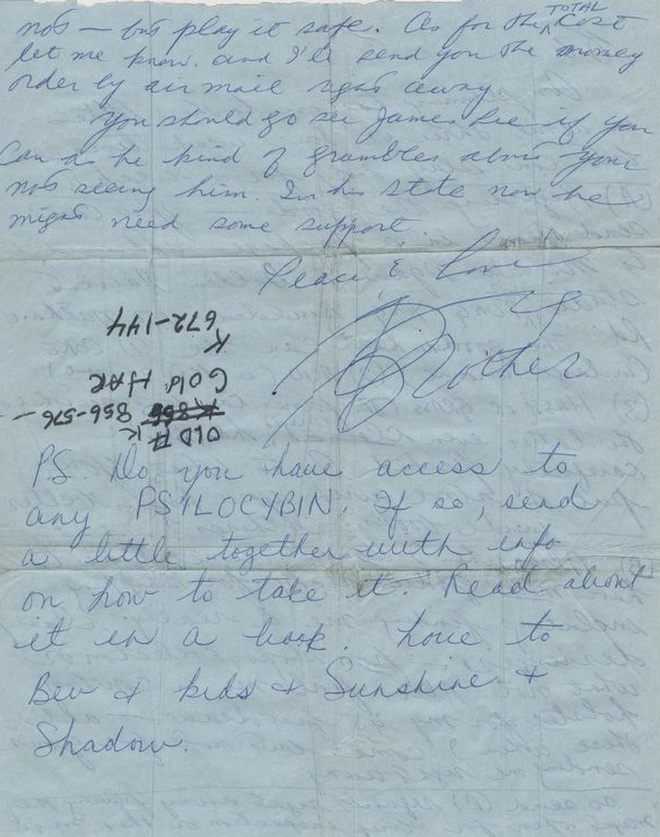 not — but play it safe. As for the TOTAL Cost
let me know and I'll send you the money
order by air mail right away
You should go see James Lee if you
Can as he kind of grumbles about your
not seeing him. In his state now he
might need some support
Peace & Love
Brother
OLD # K
856-576-
Gold HAR
K
672-144
PS. Do you have access to
any PSILOCYBIN. If so, send
a little together with info
on how to take it. Read about
it in a book. Love to
Bev & kids & Sunshine &
Shadow.